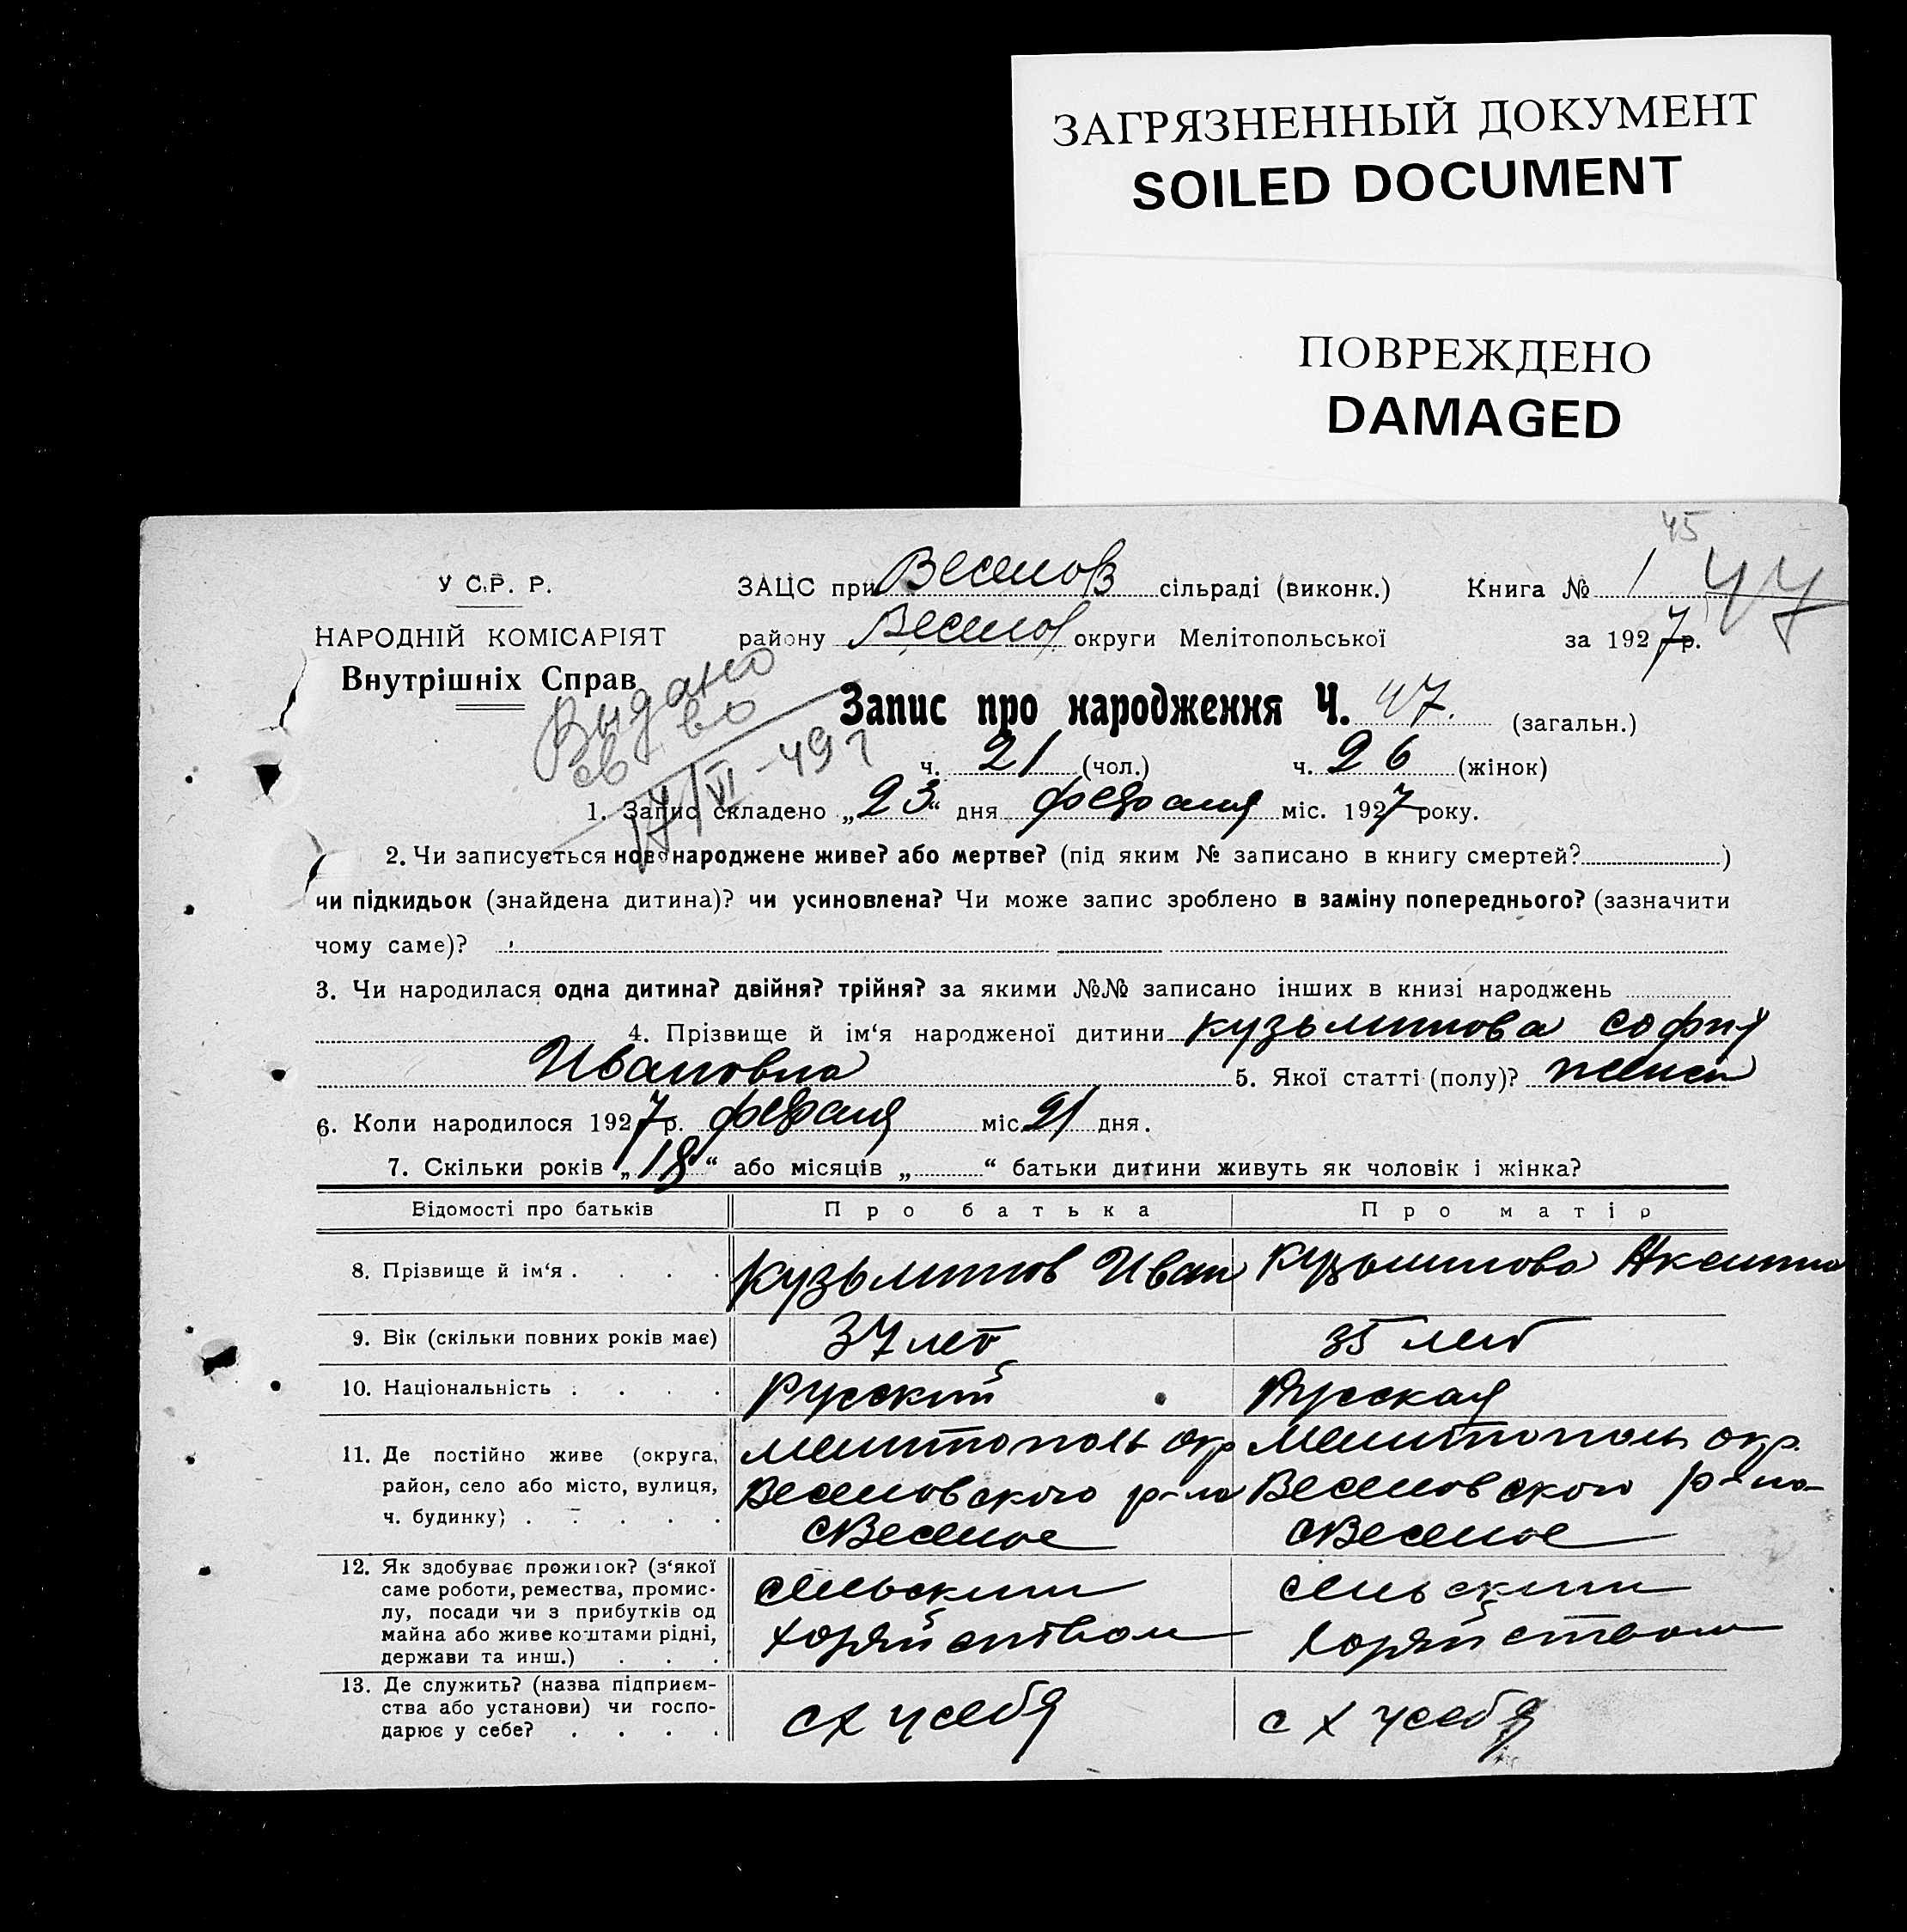 ЗАГРЯЗНЕННЫЙ ДОКУМЕНТ
SOILED DOCUMENT
ПОВРЕЖДЕНО
DAMAGED
45
У С.Р. Р.
ЗАЦС при Веселов сільраді (виконк.) Книга № 1 47
НАРОДНІЙ КОМІСАРІЯТ
району Веселов округи Мелітопольської за 1927 р.
Внутрішніх Справ
Выдано
св во
17/VI-49г
Запис про народження Ч. 47. (загальн.)
ч. 21 (чол.) ч. 26 (жінок)
1. Запис складено „23“ дня февраля міс. 1927 року.
2. Чи записується новонароджене живе? або мертве? (під яким № записано в книгу смертей?)
чи підкидьок (знайдена дитина)? чи усиновлена? Чи може запис зроблено в заміну попереднього? (зазначити
чому саме)?
3. Чи народилася одна дитина? двійня? трійня? за якими №№ записано інших в книзі народжень
4. Прізвище й ім‘я народженої дитини Кузьминова София
Ивановна 5. Якої статті (полу)? женск
6. Коли народилося 1927 р. февраля міс 21 дня.
7. Скільки років „18“ або місяців „ “ батьки дитини живуть як чоловік і жінка?
Відомості про батьків Про батька Про матір
8. Прізвище й ім‘я Кузьминов Иван Кузьминова Аксинья
9. Вік (скільки повних років має) 37 лет 35 лет
10. Національність Русский Русская
11. Де постійно живе (округа, Мелитополь окр Мелитополь окр.
район, село або місто, вулиця, Веселовского р-на Веселовского р-на
ч. будинку) с Веселое с Веселое
12. Як здобуває прожиток? (з‘якої
саме роботи, ремества, промис- сельским сельским
лу, посади чи з прибутків од
майна або живе коштами рідні, хозяйством хозяйством
держави та инш.)
13. Де служить? (назва підприєм-
ства або установи) чи госпо- с х у себя с х у себя
дарює у себе?